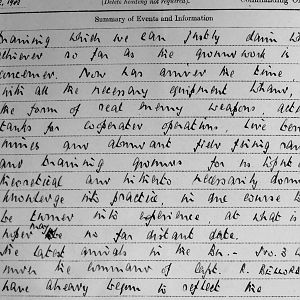 (Delete heading not required).
Commanding O
Summary of Events and Information
training which we can justly claim to
achieved so far as the groundwork is
concerned. Now has arrived the time
with all the necessary equipment
the form of real enemy weapons
tanks for cooperation operations, live
mines and abundant field firing
and training grounds for us to
theoretical and hitherto necessarily
knowledge into practice, in due course to
be turned into experience at what is
hoped be no far distant date.
The latest arrivals in the Bn.
under the command of Capt. R.
have already begun to reflect the